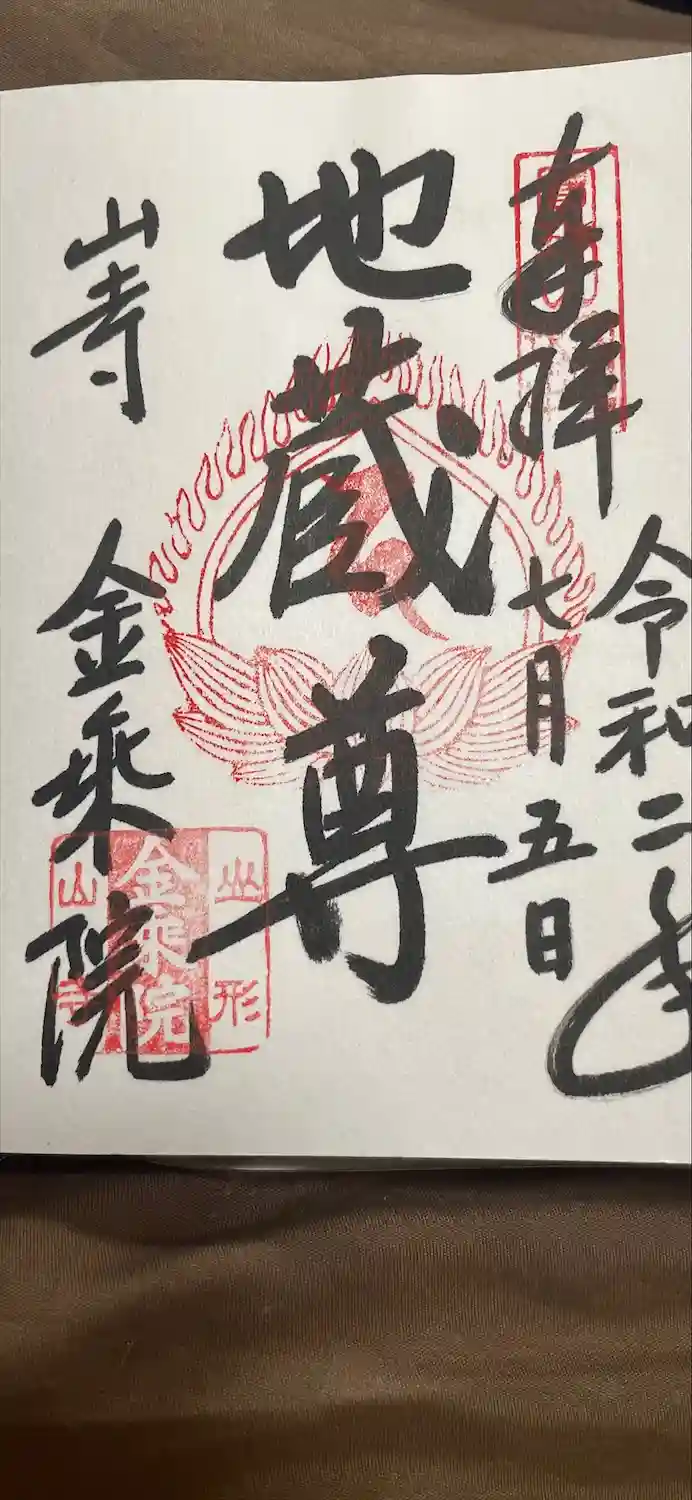 奉拝
令和二年
七月五日
地蔵尊
山寺
金乗院
山形
金乗院
山寺